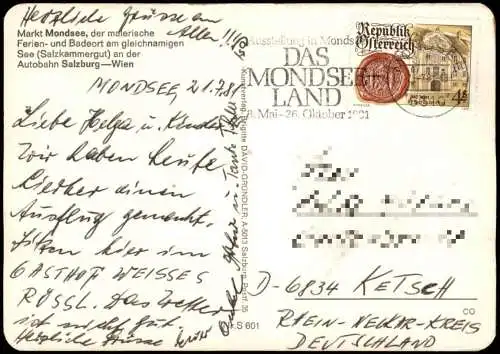 Herzliche Grüsse an
Allen !!!
Markt Mondsee, der malerische
Ferien- und Badeort am gleichnamigen
See (Salzkammergut) an der
Autobahn Salzburg—Wien
MONDSEE, 21.7.81
Liebe Helga u. Kinder
Wir haben heute
hierher einen
Ausflug gemacht.
Sitzen hier im
GASTHOF WEISSES
RÖSSL. Das Wetter
ist nicht gut.
Herzliche Grüsse
Onkel u. Tante
DAVID-GRÜNDLER, A-5013 Salzburg, Postf. 35
S 601
Ausstellung in Mondsee
DAS
MONDSEER
LAND
8. Mai-26. Oktober 1981
Republik
Österreich
4S
D-6834 KETSCH
RHEIN-NECKAR-KREIS
DEUTSCHLAND
CO